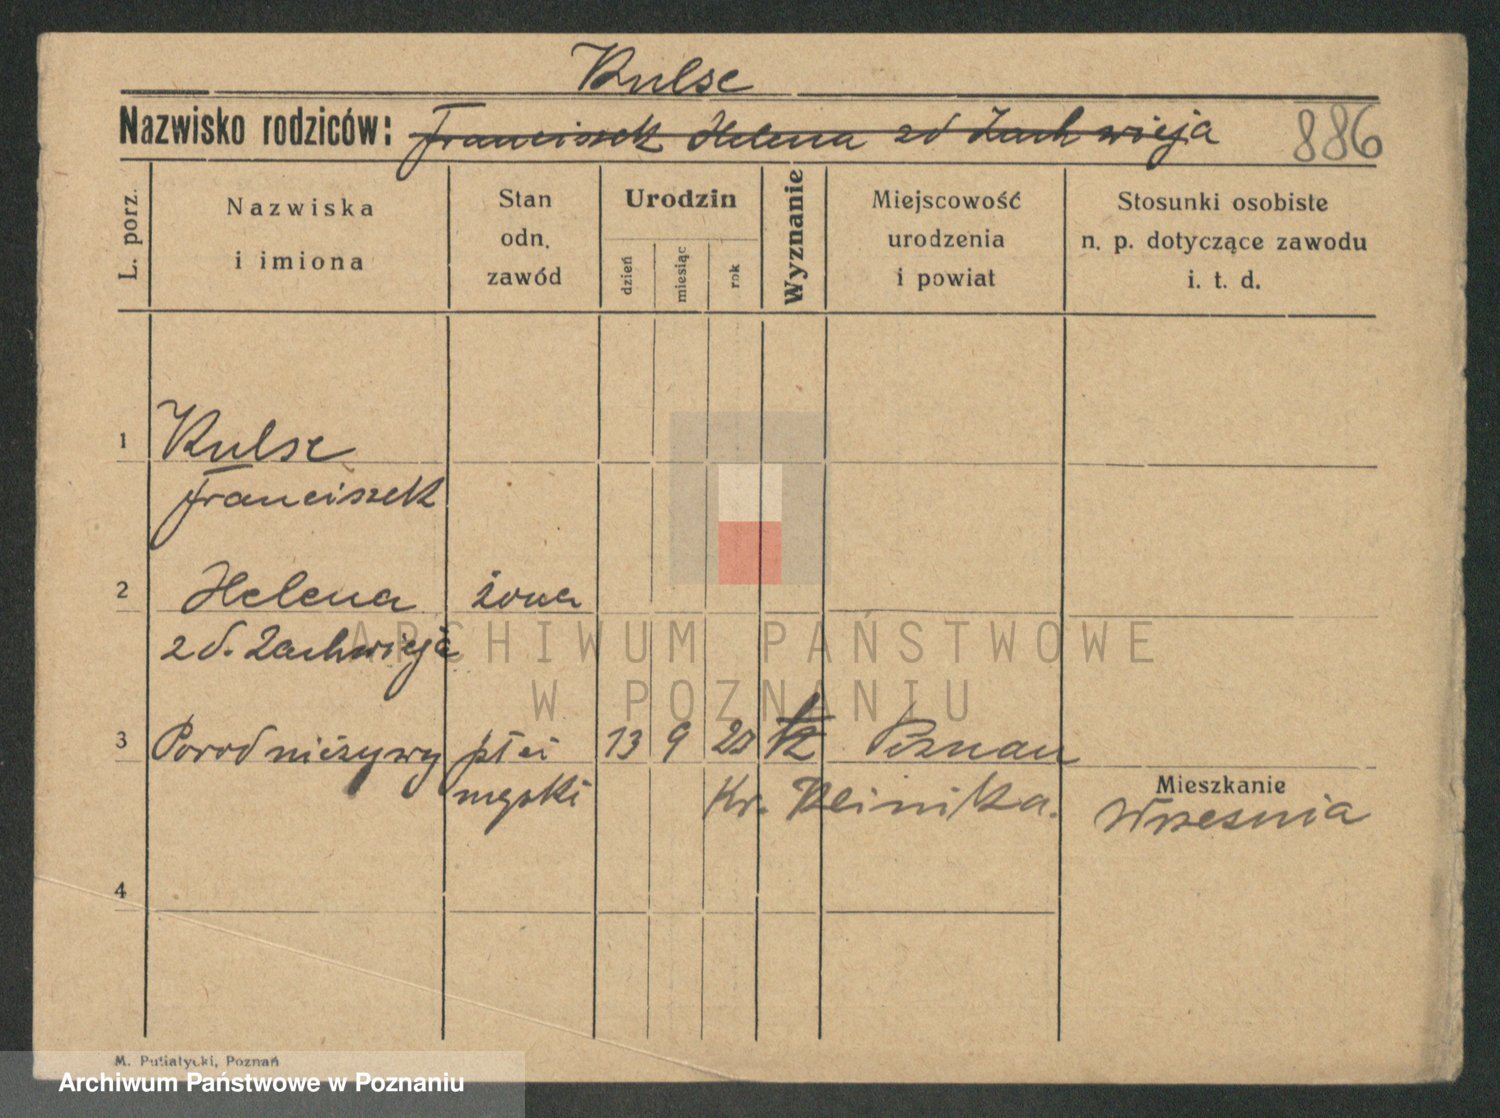 Kulse
Nazwisko rodziców: Franciszek Helena zd Zachwieja 886
L. porz.
Nazwiska
i imiona
Stan
odn.
zawód
Urodzin
dzień
miesiąc
rok
Wyznanie
Miejscowość
urodzenia
i powiat
Stosunki osobiste
n. p. dotyczące zawodu
i. t. d.
1 Kulse
Franciszek
2 Helena żona
zd. Zachwieja
ARCHIWUM PAŃSTWOWE
W POZNANIU
3 Poród nieżywy płci 13 9 20 Poznan
męski Kr. Klinika.
Mieszkanie
Wrzesnia
4
M. Putiatycki, Poznań
Archiwum Państwowe w Poznaniu